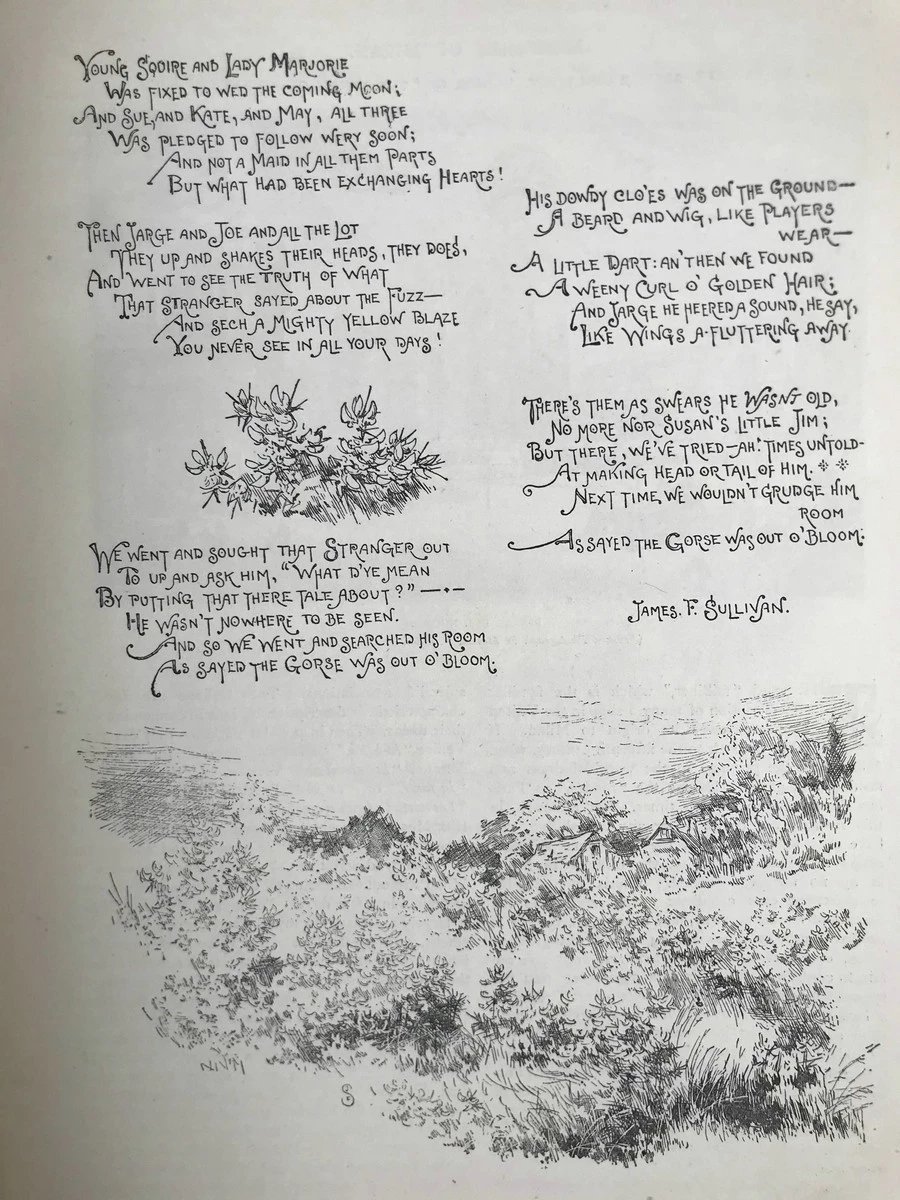 Young Squire and Lady Marjorie
Was fixed to wed the coming Moon;
And Sue, and Kate, and May, all three
Was pledged to follow wery soon;
And not a Maid in all them Parts
But what had been exchanging Hearts!
Then Jarge and Joe and all the Lot
They up and shakes their heads, they does,
And went to see the truth of what
That stranger sayed about the Fuzz—
And sech a mighty yellow blaze
You never see in all your days!
We went and sought that Stranger out
To up and ask him, "What d'ye mean
By putting that there tale about?" —·—
He wasn't nowhere to be seen.
And so we went and searched his room
As sayed the Gorse was out o' Bloom.
His dowdy clo'es was on the Ground—
A Beard and Wig, like Players
wear—
A little Dart: an' then we found
A weeny Curl o' Golden Hair;
And Jarge he heered a sound, he say,
Like Wings a-fluttering away.
There's them as swears he wasn't old,
No more nor Susan's little Jim;
But there, we've tried—ah! times untold—
At making head or tail of him. * *
Next time, we wouldn't grudge him
room
As sayed the Gorse was out o' Bloom.
James. F. Sullivan.
S